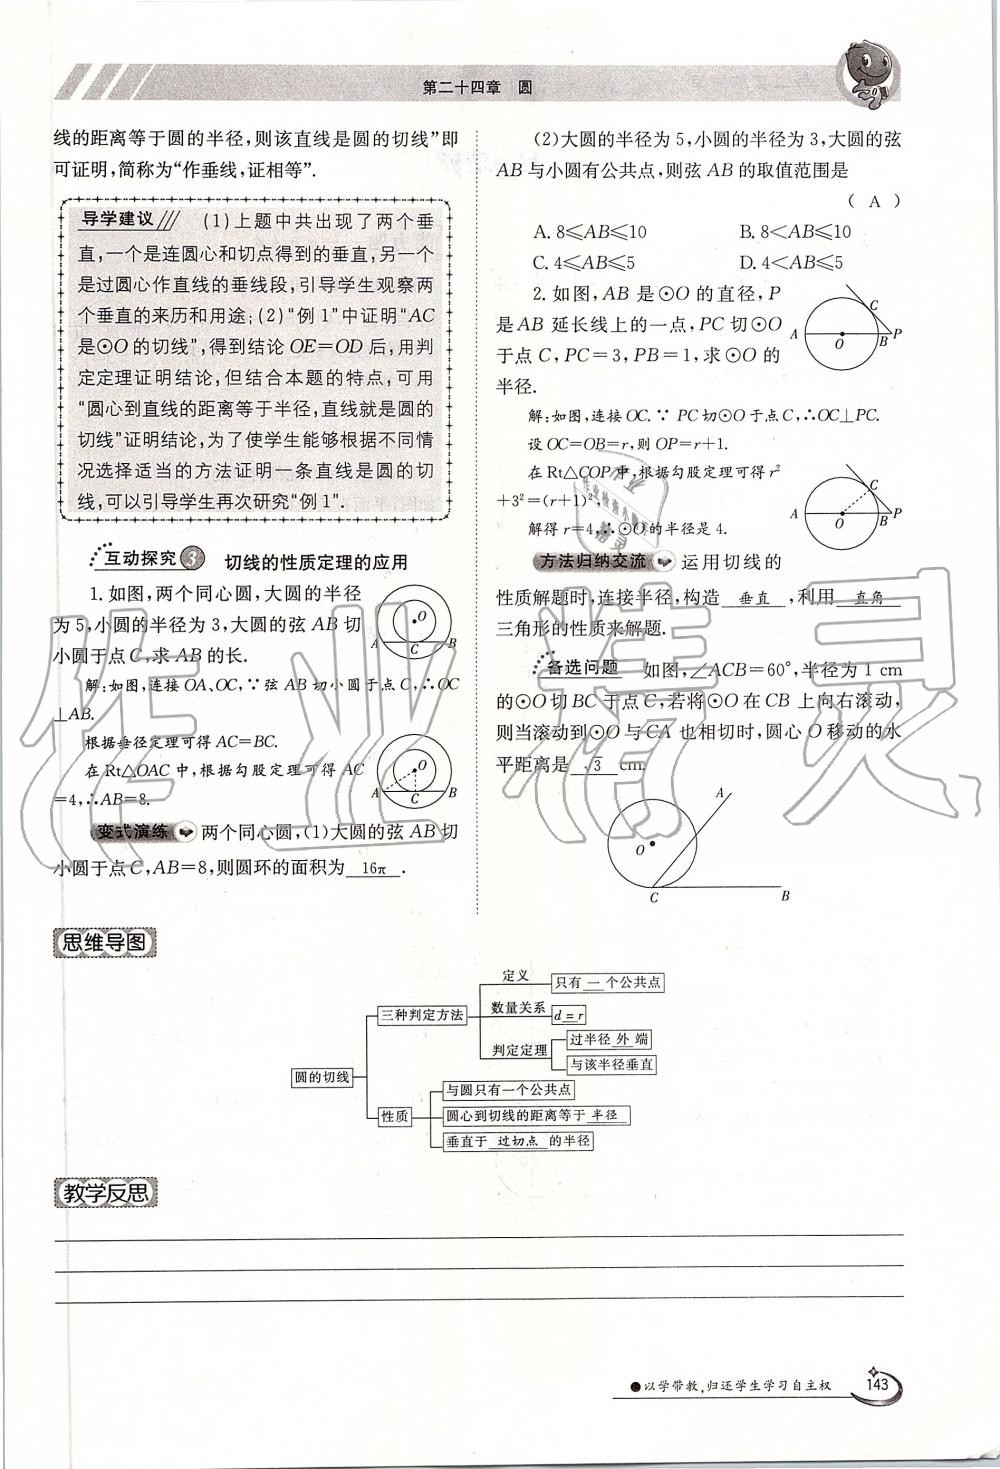 第二十四章 圆
线的距离等于圆的半径,则该直线是圆的切线”即
可证明,简称为“作垂线,证相等”.
导学建议 (1)上题中共出现了两个垂
直,一个是连圆心和切点得到的垂直,另一个
是过圆心作直线的垂线段,引导学生观察两
个垂直的来历和用途;(2)“例1”中证明“AC
是⊙O的切线”,得到结论OE=OD后,用判
定定理证明结论,但结合本题的特点,可用
“圆心到直线的距离等于半径,直线就是圆的
切线”证明结论,为了使学生能够根据不同情
况选择适当的方法证明一条直线是圆的切
线,可以引导学生再次研究“例1”.
互动探究3 切线的性质定理的应用
1.如图,两个同心圆,大圆的半径
为5,小圆的半径为3,大圆的弦AB切
小圆于点C,求AB的长.
O
A
C
B
解:如图,连接OA、OC,∵弦AB切小圆于点C,∴OC
⊥AB.
根据垂径定理可得AC=BC.
在Rt△OAC中,根据勾股定理可得AC
=4,∴AB=8.
O
A
C
B
变式演练 两个同心圆,(1)大圆的弦AB切
小圆于点C,AB=8,则圆环的面积为 16π .
(2)大圆的半径为5,小圆的半径为3,大圆的弦
AB与小圆有公共点,则弦AB的取值范围是
( A )
A. 8≤AB≤10 B. 8<AB≤10
C. 4≤AB≤5 D. 4<AB≤5
2.如图,AB是⊙O的直径,P
是AB延长线上的一点,PC切⊙O
于点C,PC=3,PB=1,求⊙O的
半径.
C
A
O
B
P
解:如图,连接OC.∵PC切⊙O于点C,∴OC⊥PC.
设OC=OB=r,则OP=r+1.
在Rt△COP中,根据勾股定理可得r²
+3²=(r+1)²,
解得r=4,∴⊙O的半径是4.
C
A
O
B
P
方法归纳交流 运用切线的
性质解题时,连接半径,构造 垂直 ,利用 直角
三角形的性质来解题.
备选问题 如图,∠ACB=60°,半径为1 cm
的⊙O切BC于点C,若将⊙O在CB上向右滚动,
则当滚动到⊙O与CA也相切时,圆心O移动的水
平距离是 √3 cm.
A
O
C
B
作业精灵
思维导图
圆的切线
三种判定方法
定义
只有 一 个公共点
数量关系
d=r
判定定理
过半径 外 端
与该半径垂直
性质
与圆只有一个公共点
圆心到切线的距离等于 半径
垂直于 过切点 的半径
教学反思
●以学带教,归还学生学习自主权
143